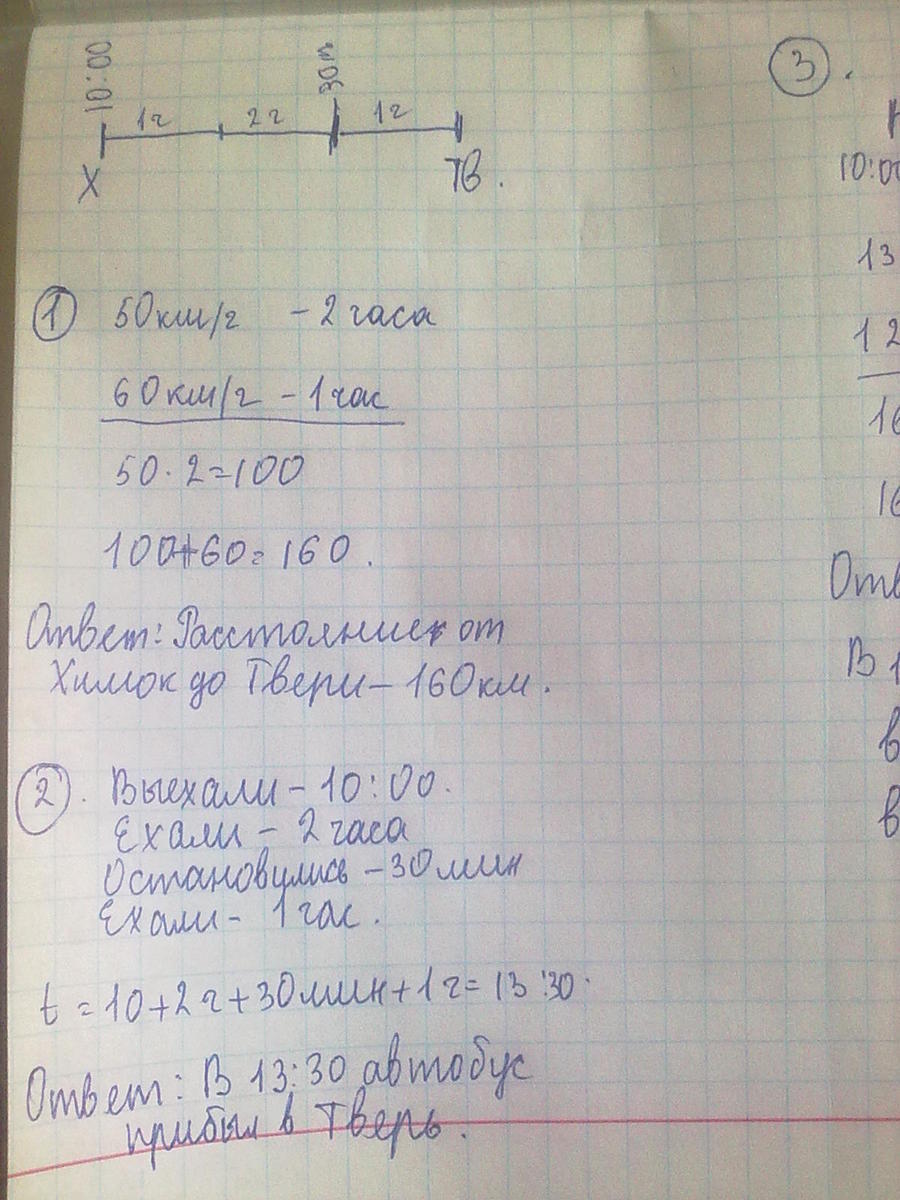 10:00
30м
1ч 2ч 1ч
Х Тв.
① 50км/ч - 2 часа
60км/ч - 1 час
50 · 2=100
100+60=160.
Ответ: Расстояние от
Химок до Твери - 160км.
②. Выехали - 10:00.
Ехали - 2 часа
Остановулись - 30 мин
Ехали - 1 час.
t = 10+2ч+30мин+1ч= 13:30.
Ответ: В 13:30 автобус
прибыл в Тверь.
③.
10:00
13
12
16
16
Отв
В 1
в
в